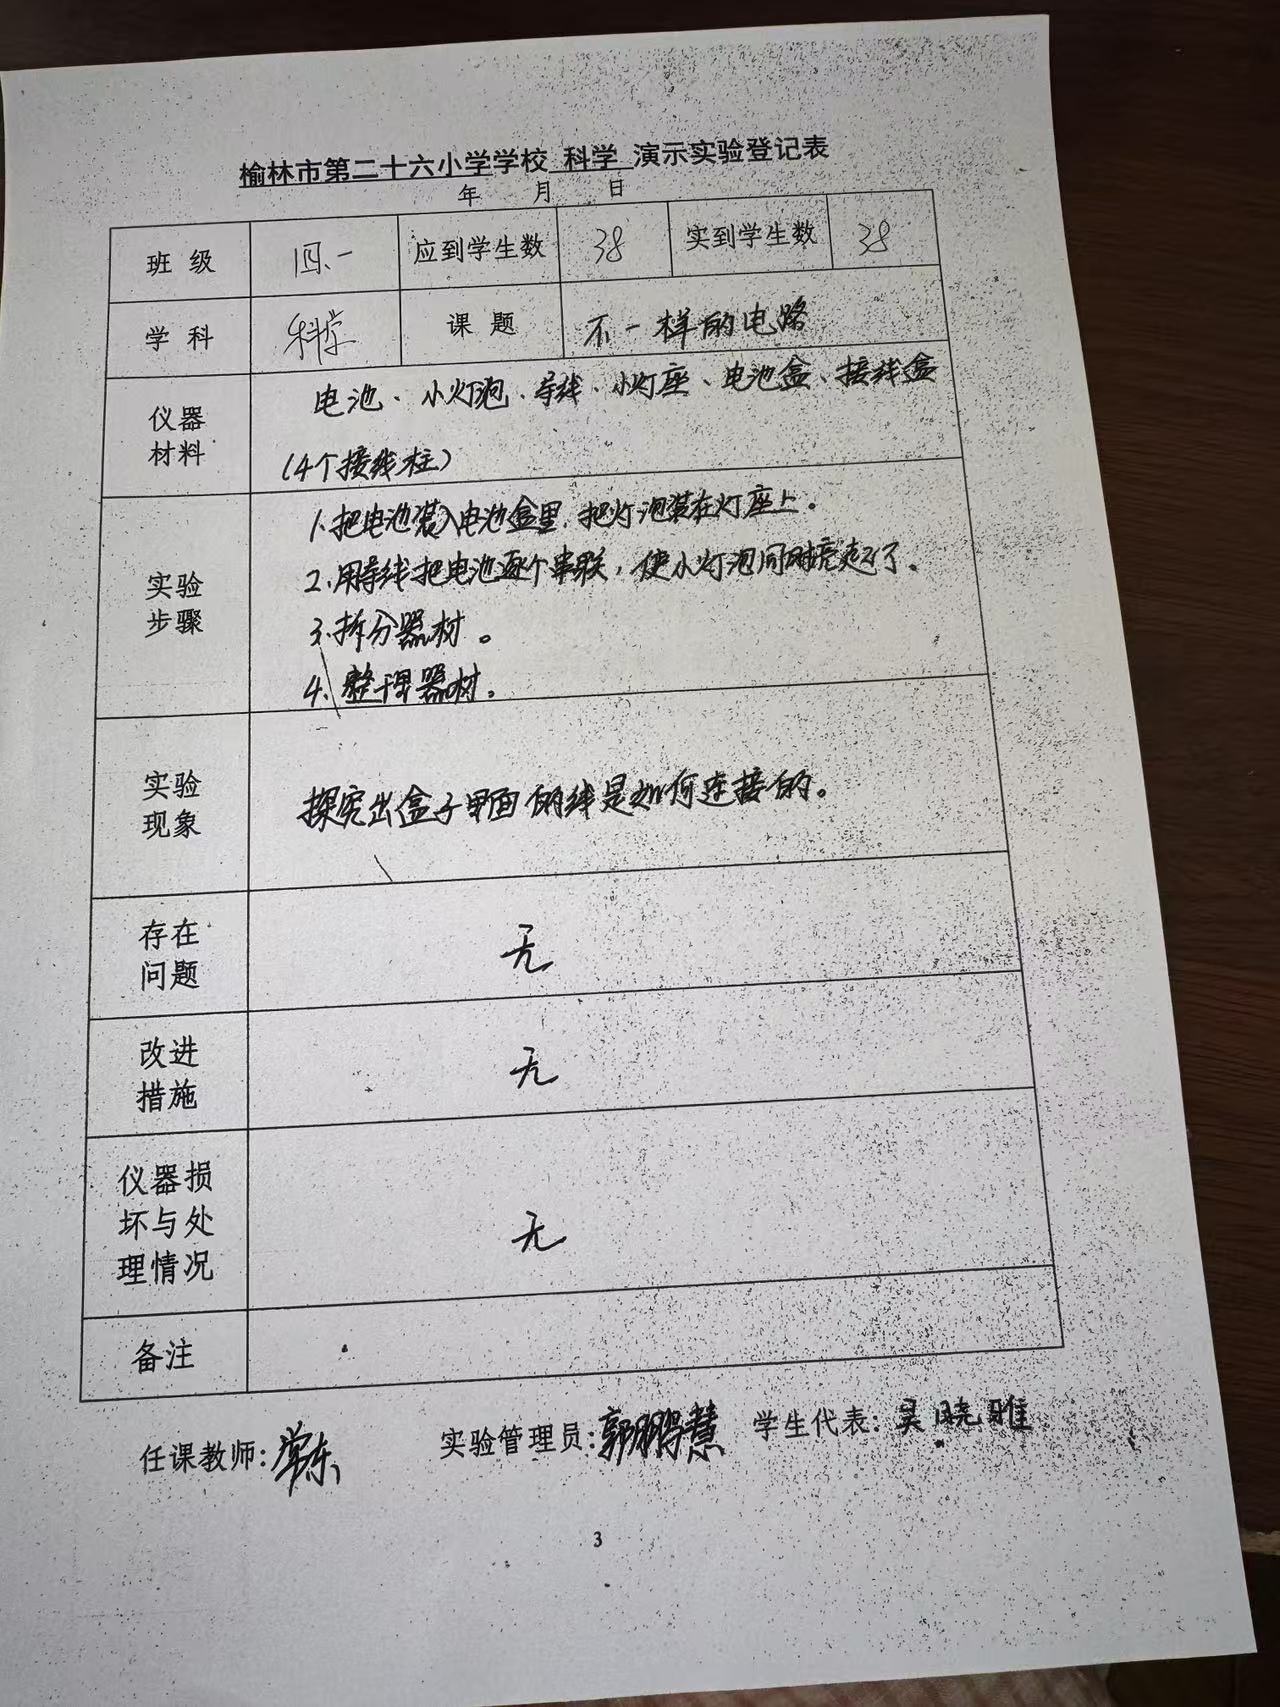 榆林市第二十六小学学校 科学 演示实验登记表
年 月 日
班 级 四.一 应到学生数 38 实到学生数 38
学 科 科学 课 题 不一样的电路
仪器
材料
电池、小灯泡、导线、小灯座、电池盒、接线盒
(4个接线柱)
实验
步骤
1.把电池装入电池盒里,把灯泡装在灯座上。
2.用导线把电池逐个串联,使小灯泡同时亮起了。
3.拆分器材。
4.整理器材。
实验
现象
探究出盒子里面的线是如何连接的。
存在
问题
无
改进
措施
无
仪器损
坏与处
理情况
无
备注
任课教师: 常东 实验管理员: 郭鹏慧 学生代表: 吴晓雅
3